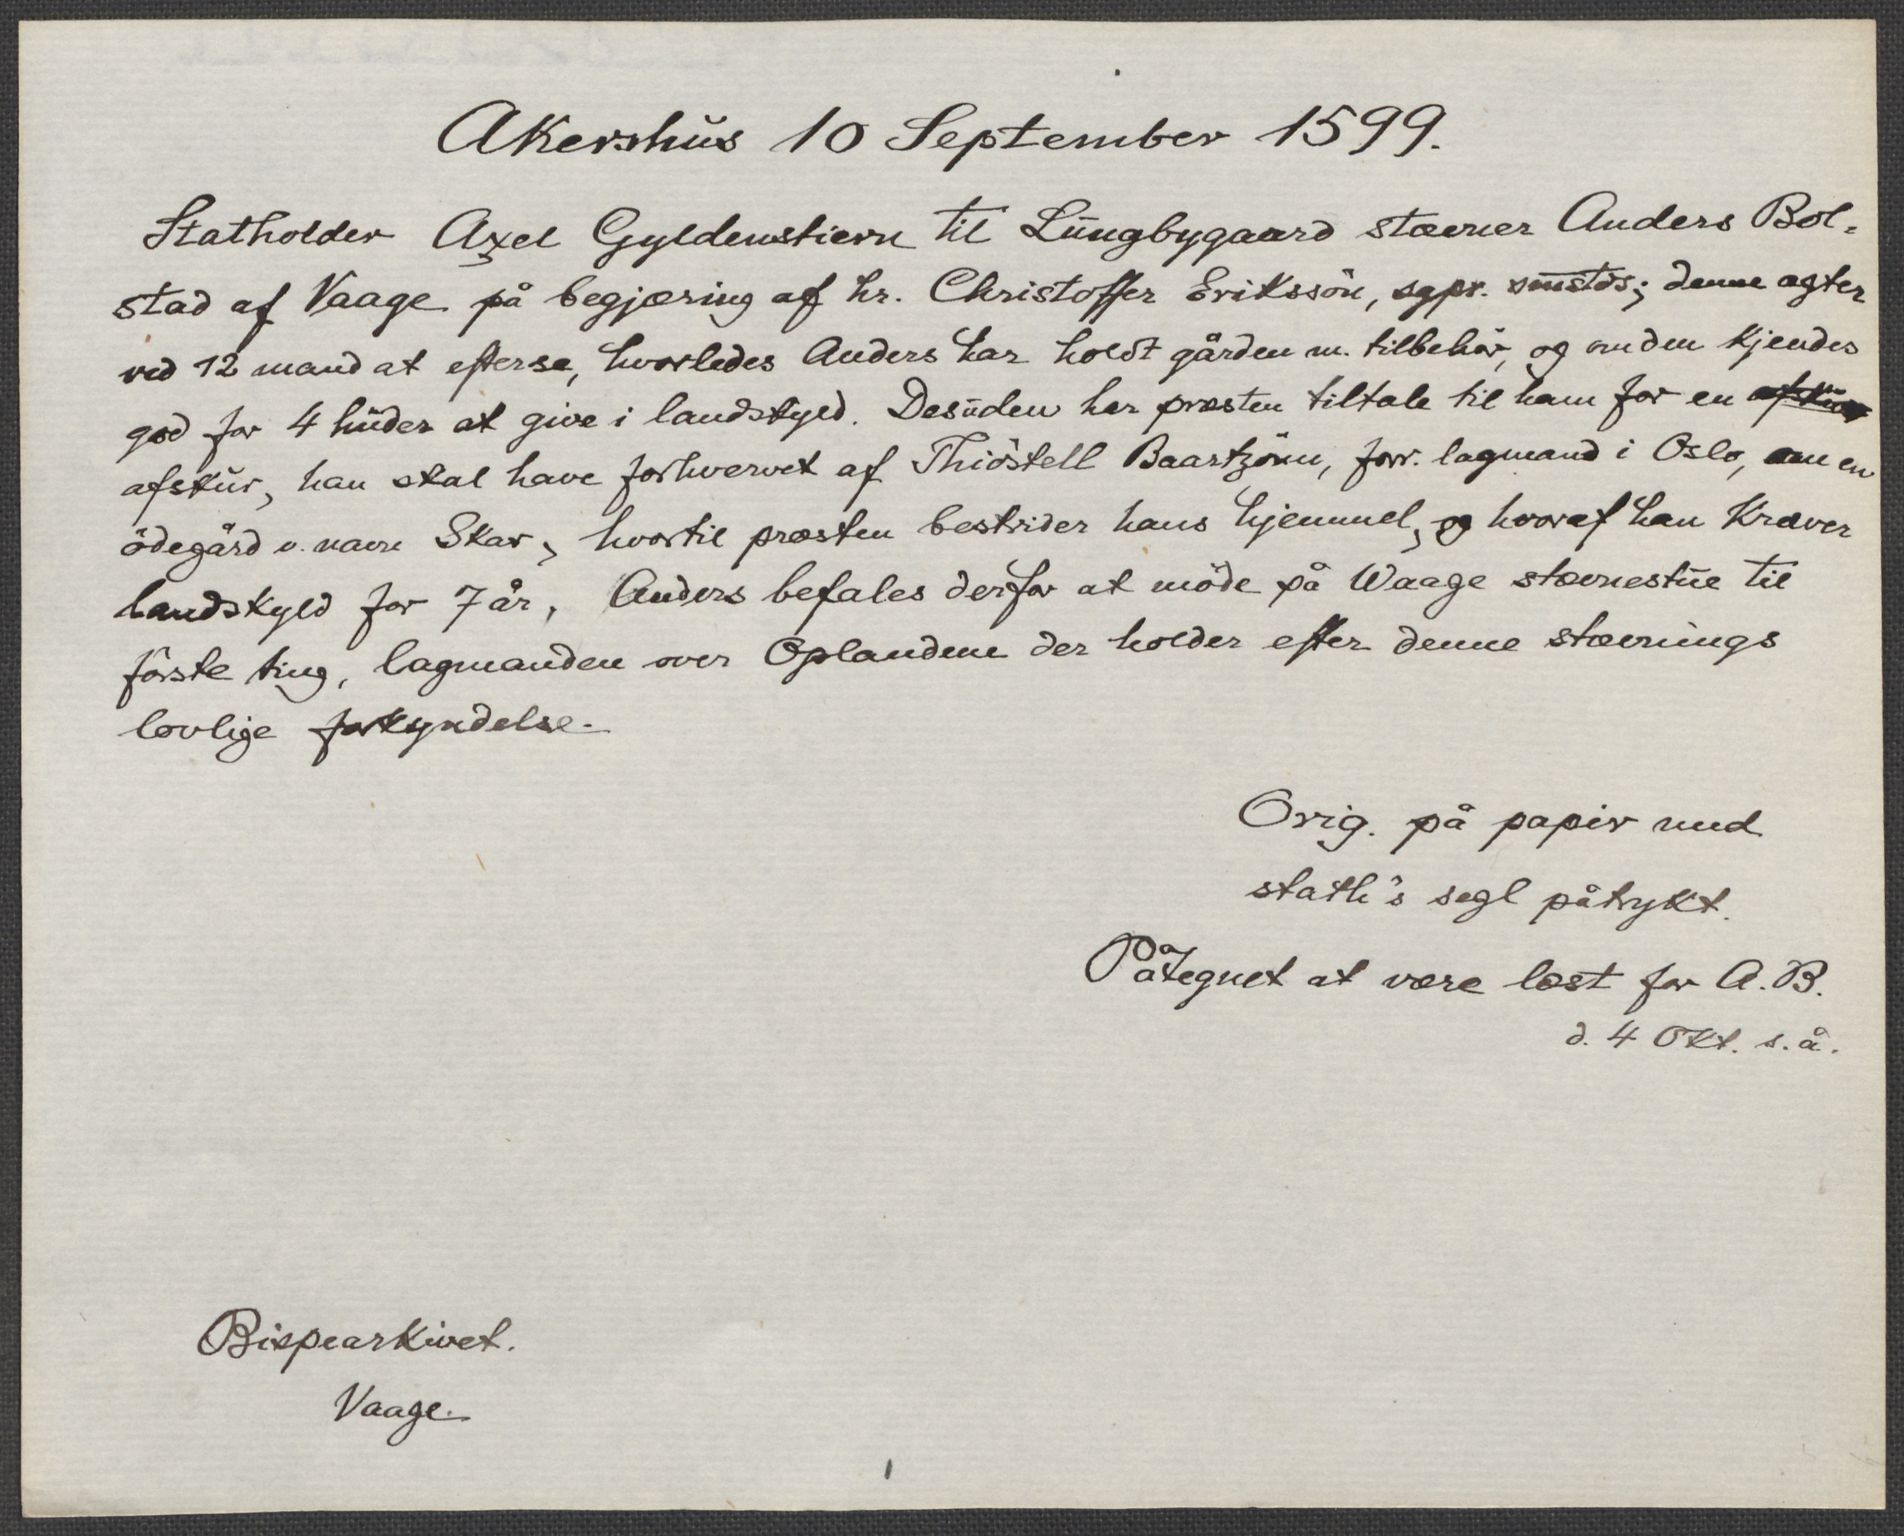 Akershus 10 September 1599.
Statholder Axel Gyldenstiern til Lungbygaard stævner Anders Bol-
stad af Vaage på begjæring af hr. Christoffer Erikssön, sgpr. smstds; denne agter
ved 12 mand at efterse, hvorledes Anders har holdt gården m. tilbehör, og om den kjendes
god for 4 huder at give i landskyld. Desuden har præsten tiltale til ham for en
afskur, han skal have forhvervet af Thiöstell Baartzönn, forr. lagmand i Oslo, om en
ödegård v. navn Skar, hvortil præsten bestrider hans hjemmel, og hvoraf han kræver
landskyld for 7 år, Anders befales derfor at möde på Waage stævnestue til
förste ting, lagmanden over Oplandene der holder efter denne stævnings
lovlige forkyndelse.
Orig. på papir med
stath's segl påtrykt.
Påtegnet at være læst for A. B.
d. 4 Okt. s. å.
Bispearkivet.
Vaage.
1